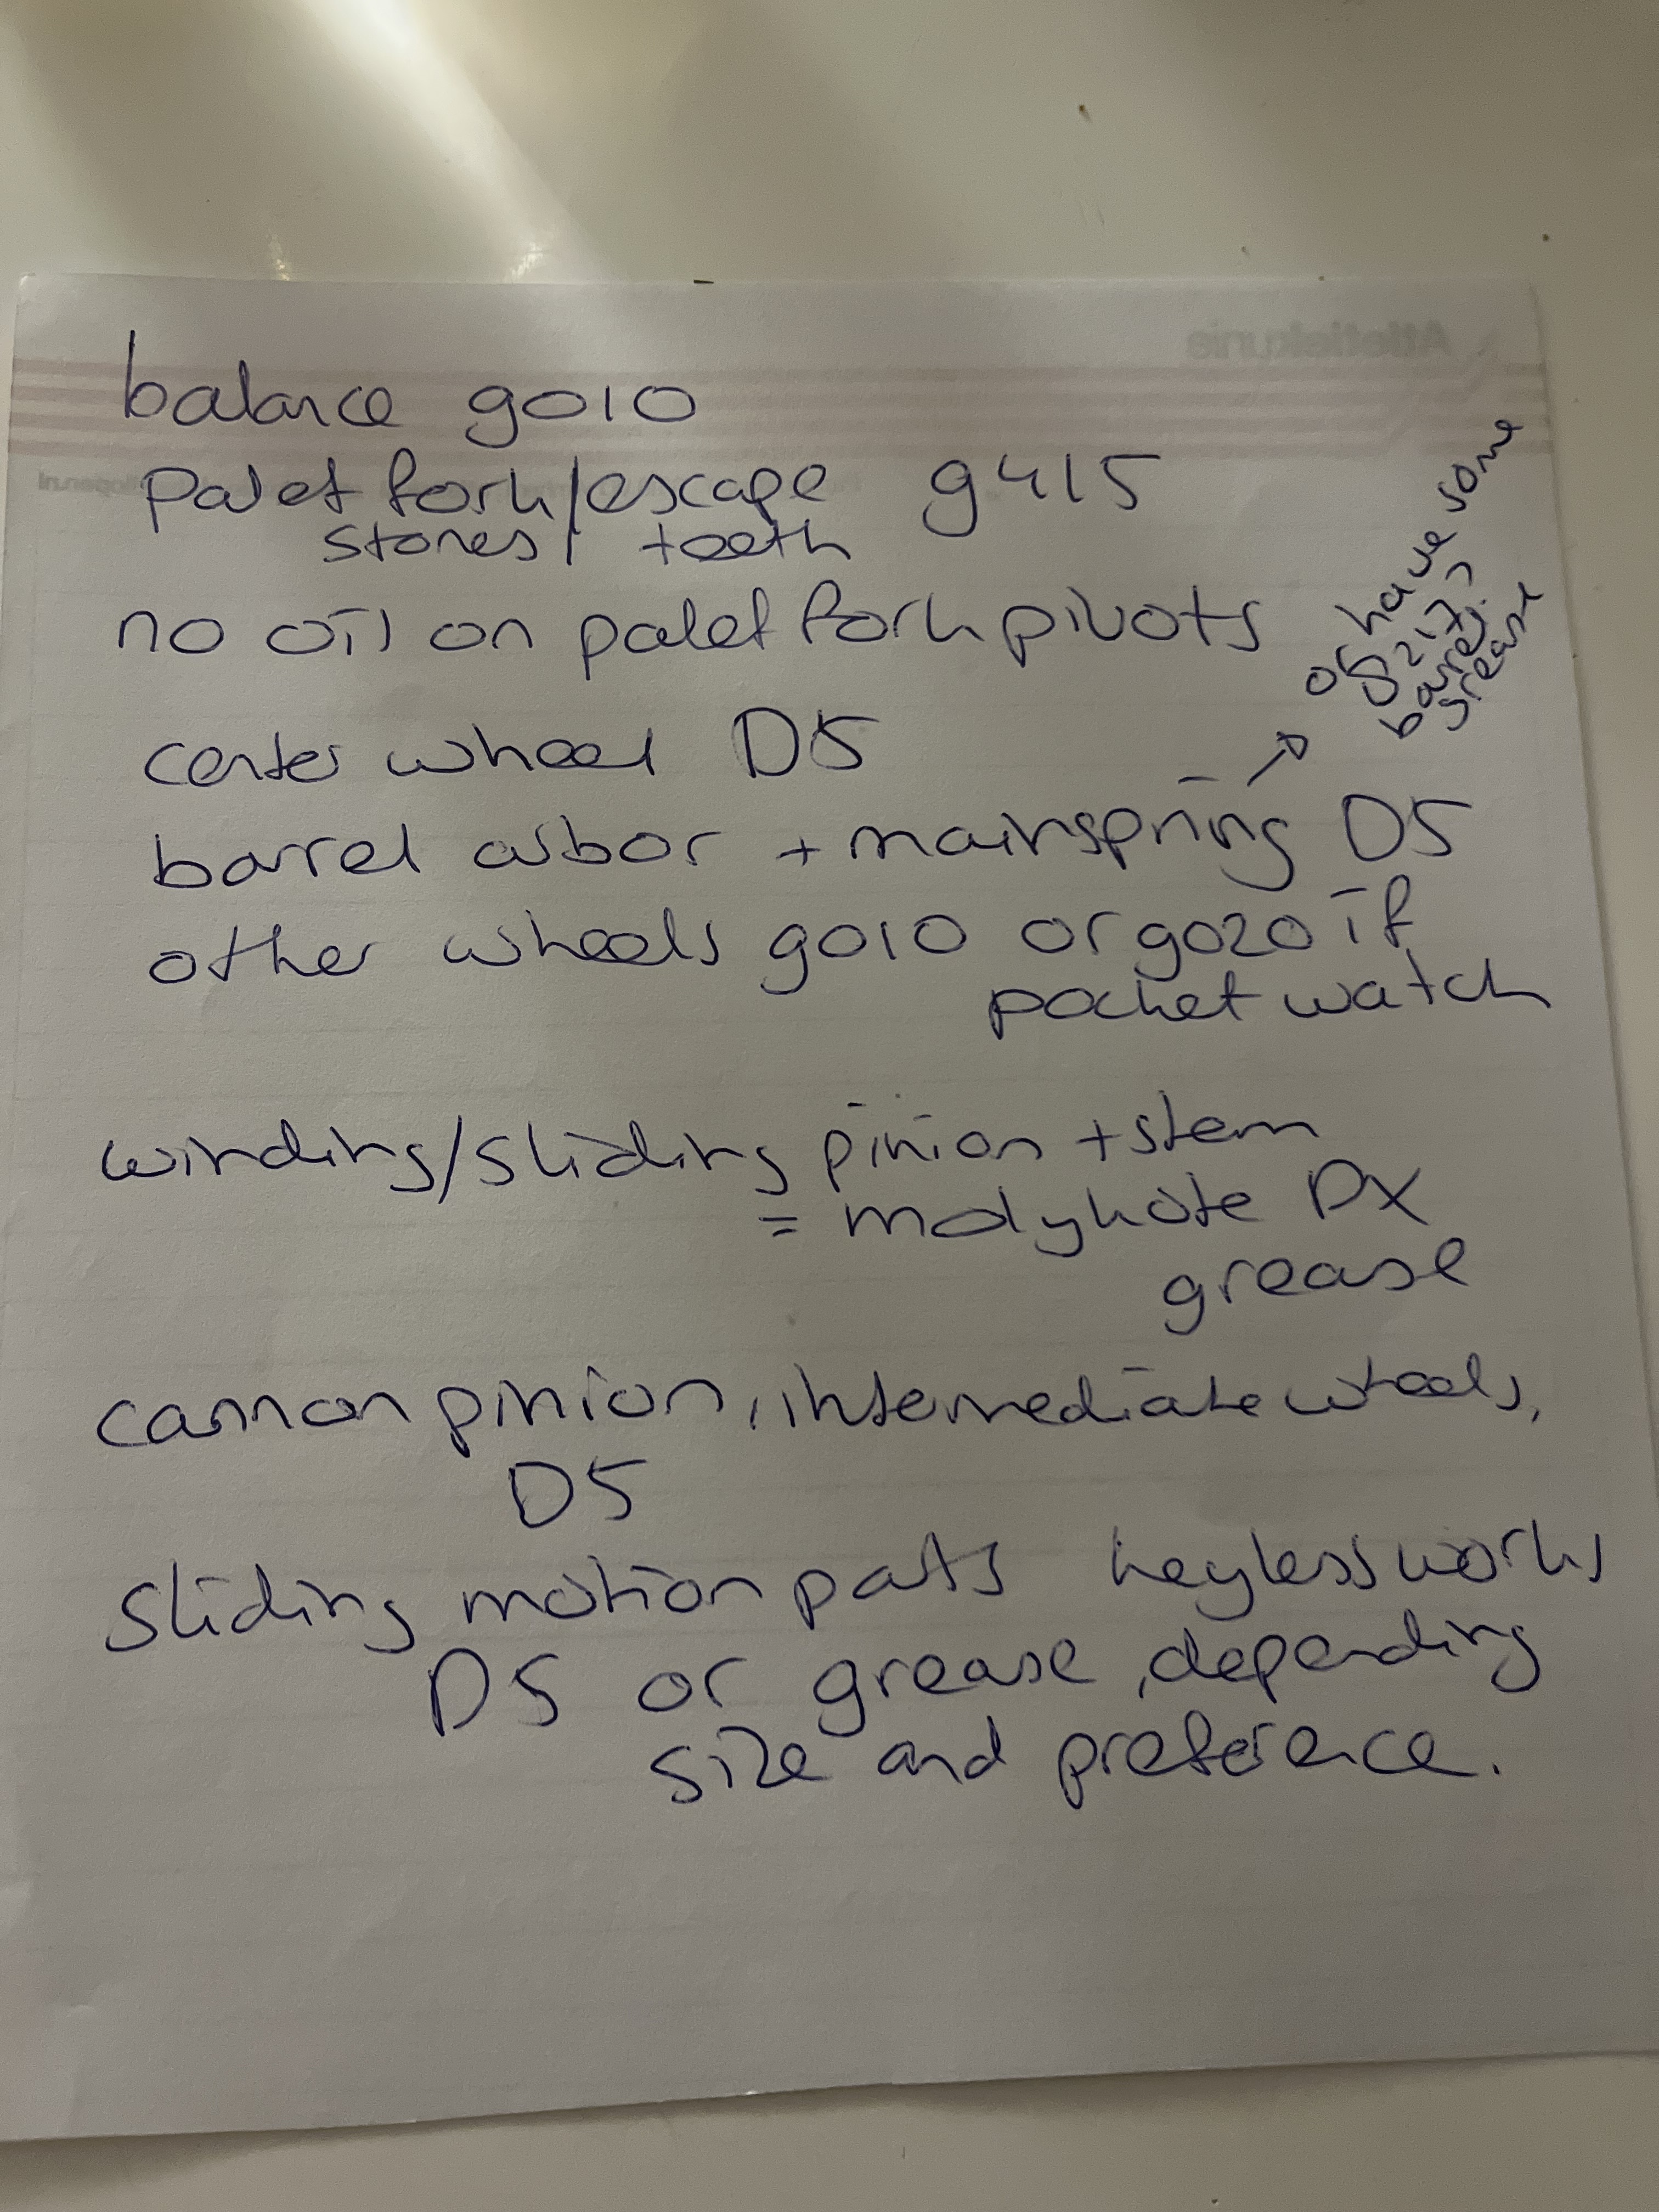 balance 9010
palet fork/escape 9415
stones/ teeth
no oil on palet fork pivots
center wheel D5
barrel arbor + mainspring D5
→ or have some
8217,
barrel
grease
other wheels 9010 or 9020 if
pocket watch
winding/sliding pinion + stem
= molykote DX
grease
cannon pinion, intermediate wheels,
D5
sliding motion parts keyless works
D5 or grease, depending
size and preference.
Atletiekunie